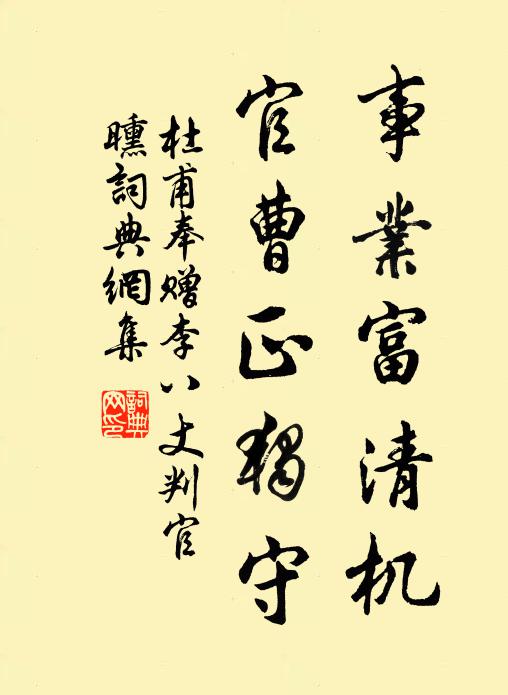 事業富清机
官曹正獨守
杜甫奉贈李八丈判官
曛詞典網集
詞典網印